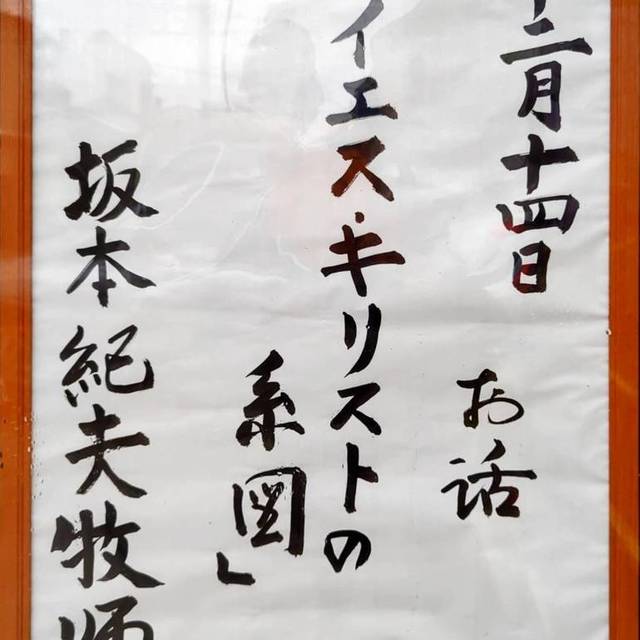 十二月十四日 お話
イエス・キリストの
系図」
坂本紀夫牧師